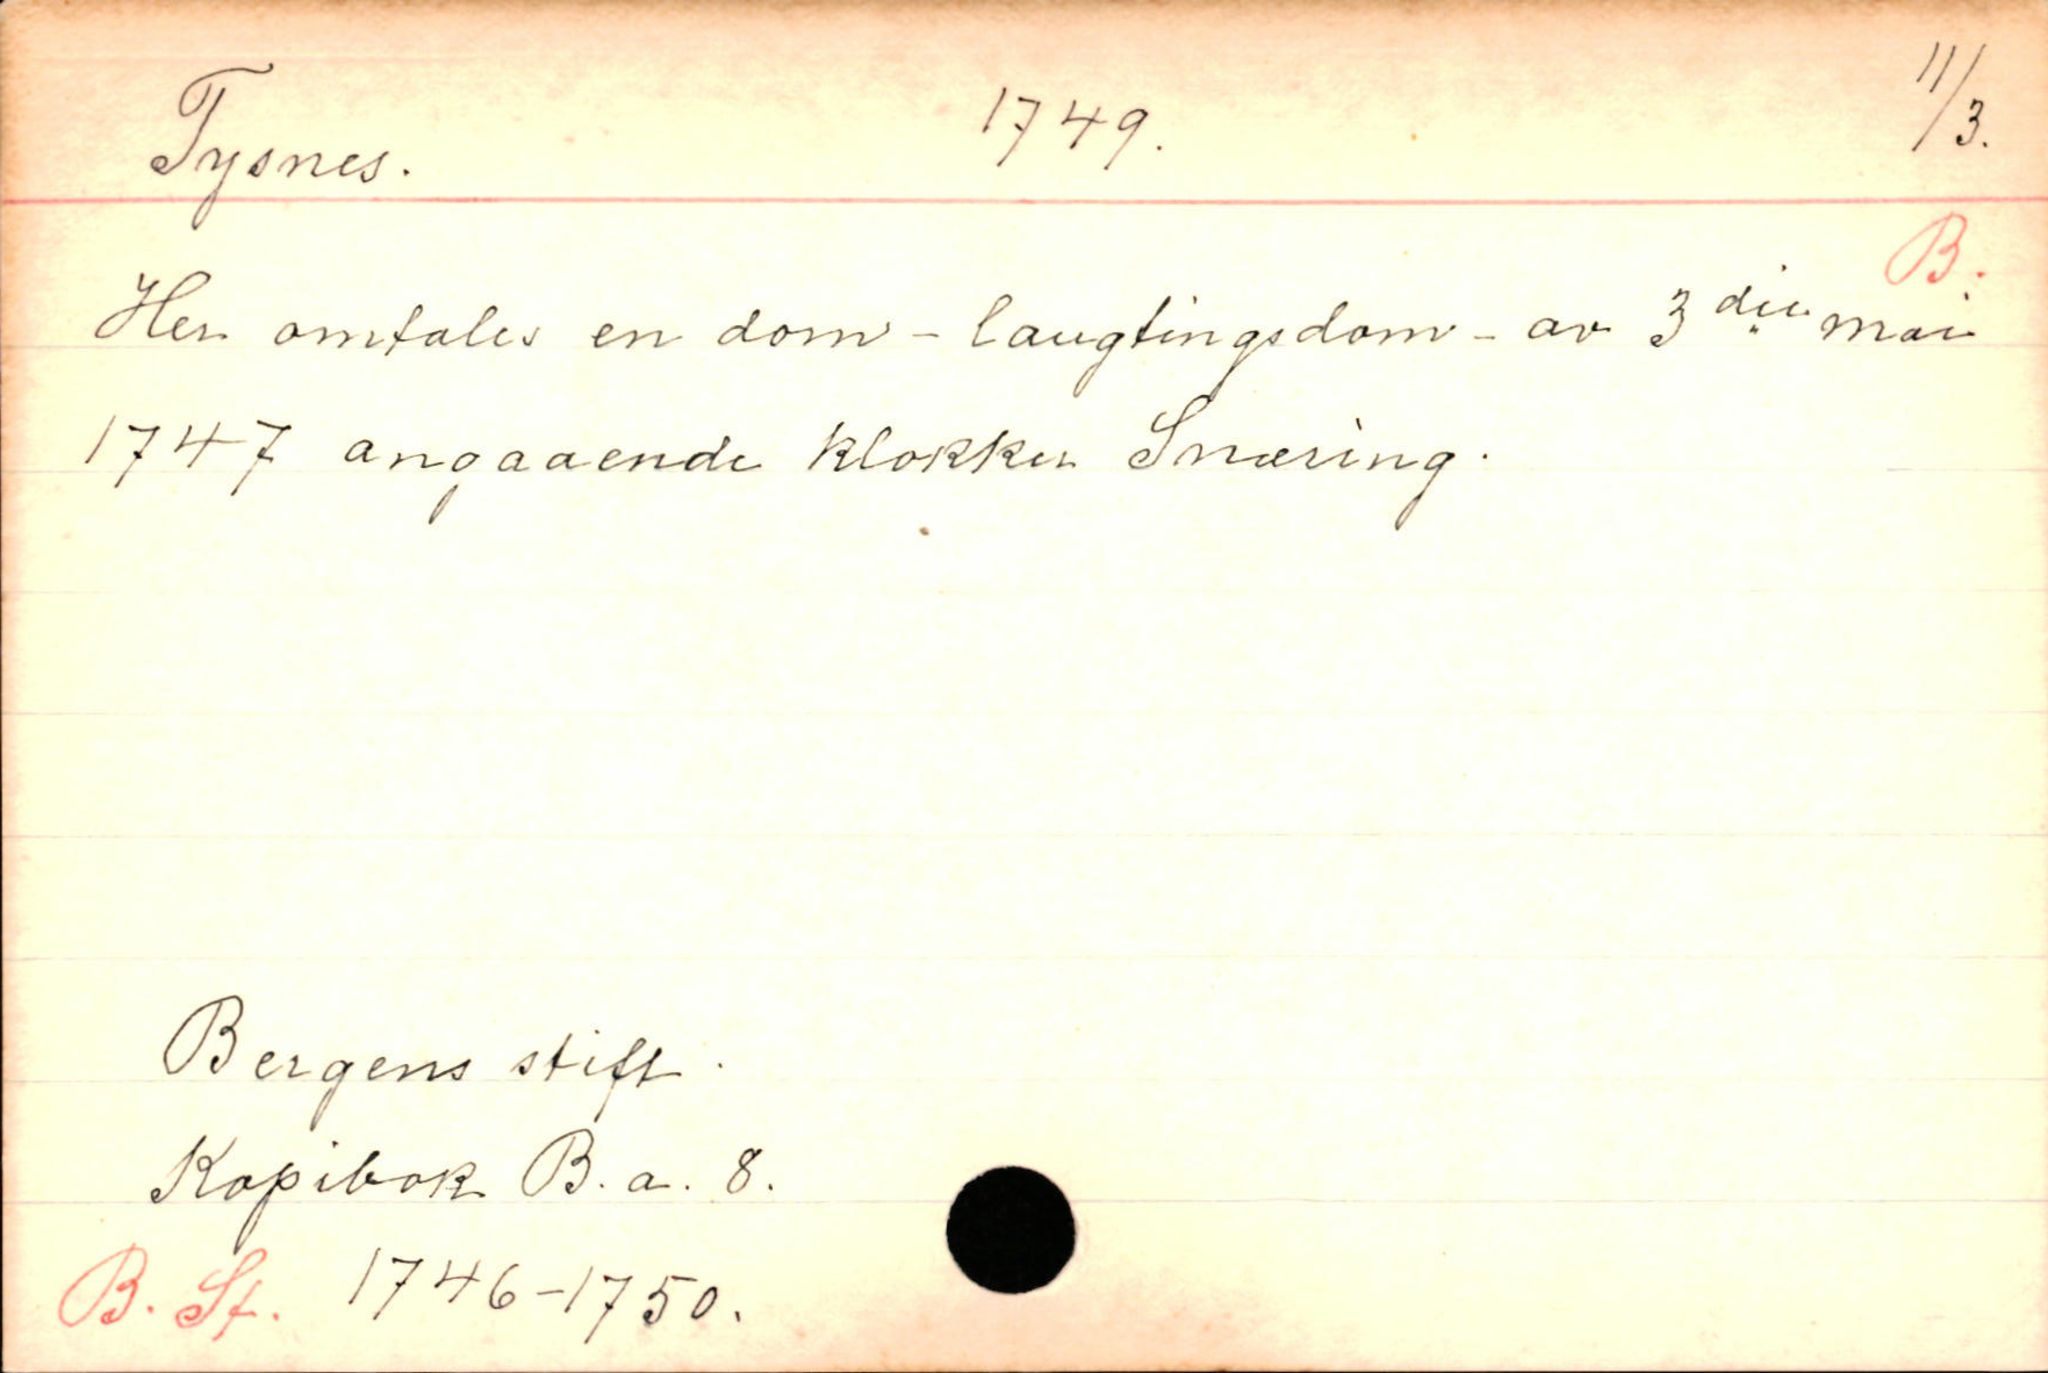 Tysnes. 1749. 11/3.
B.
Her omtales en dom - laugtingsdom - av 3die mai
1747 angaaende klokker Snæring.
Bergens stift.
Kopibok B. a. 8.
B. St. 1746-1750.